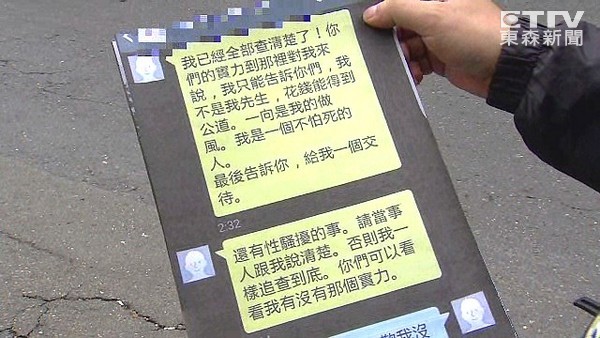 ETtV
東森新聞
我已經全部查清楚了！你
們的實力到那裡對我來
說，我只能告訴你們，我
不是我先生，花錢能得到
公道。一向是我的做
風。我是一個不怕死的
人。
最後告訴你，給我一個交
待。
2:32
還有性騷擾的事。請當事
人跟我說清楚。否則我一
樣追查到底。你們可以看
看我有沒有那個實力。
我沒